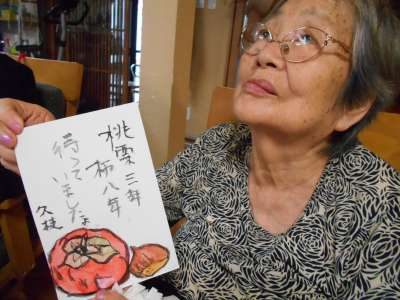 桃栗三年
柿八年
待っていましたよ
久枝